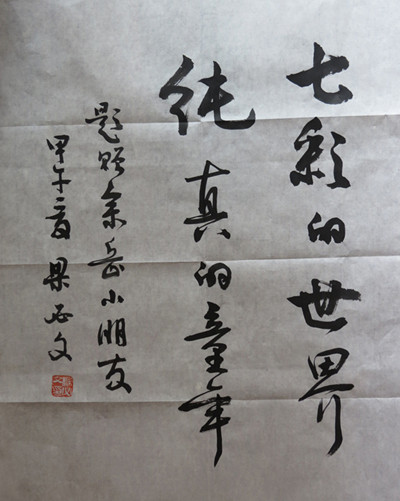 七彩的世界
纯真的童年
题赠余岳小朋友
甲午夏 梁必文